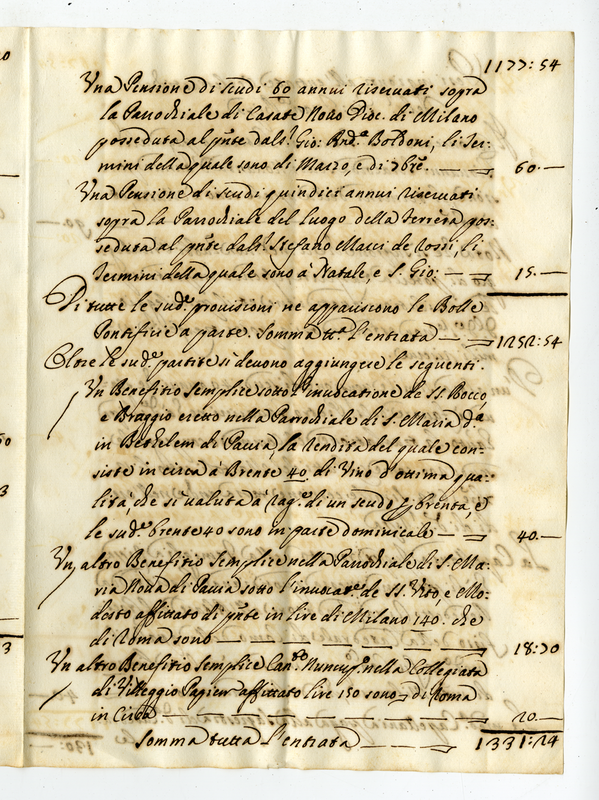 1177:54
Una Pensione di scudi 60 annui riservati sopra
la Parrochiale di Casate Novo Dioc. di Milano
posseduta al pnte dal Sr. Gio: And.a Boldoni, li Ter-
mini della quale sono di Marzo, e di 7bre. — 60.—
Una Pensione di scudi quindici annui riservati
sopra la Parrochiale del luogo della Ferrera pos-
seduta al pnte dal Sr. Stefano Macci de Rossi, li
Termini della quale sono à Natale, e S. Gio: — 15.—
Di tutte le sud.e provisioni ne appariscono le Bolle
Pontificie a parte. Somma tta l'entrata — 1252:54
Oltre le sud.e partite si devono aggiungere le seguenti.
Un Benefitio semplice sotto l'invocatione de SS. Rocco,
e Biaggio eretto nella Parrochiale di S. Maria d.a
in Bethelem di Pavia, la rendita del quale con-
siste in circa à Brente 40 di Vino d'ottima qua-
lità, che si valuta à rag.e di un scudo p brenta, e
le sud.e brente 40 sono in parte dominicale — 40.—
Un altro Benefitio semplice nella Parrochiale di S. Ma-
ria Nova di Pavia sotto l'invocat.e de SS. Vito, e Mo-
desto affittato di pnte in lire di Milano 140. che
di Roma sono — 18:70
Un altro Benefitio semplice Can.to nella Collegiata
di Villeggio affittato lire 150 sono di Roma
in circa — 20.—
Somma tutta l'entrata — 1331:24
190: